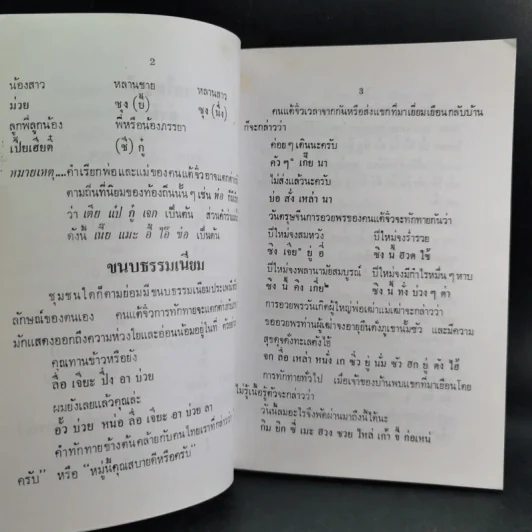 2
น้องสาว หลานชาย หลานสาว
ม่วย ซุง (ยี) ซุง (นึ่ง)
ลูกพี่ลูกน้อง พี่หรือน้องภรรยา
เปี๊ยเฮียตี๋ (ชี) กู๋
หมายเหตุ....คำเรียกพ่อและแม่ของคนแต้จิ๋วอาจแตกต่าง
ตามถิ่นที่นิยมของท้องถิ่นนั้นๆ เช่น พ่อ
ว่า เตีย แป๋ กู๋ เจก เป็นต้น ส่วนคำว่า
ดังนี้ เนี๊ย แมะ อี๊ โอ๊ ซ่อ เป็นต้น
ขนบธรรมเนียม
ชุมชนใดก็ตามย่อมมีขนบธรรมเนียมประเพณี
ลักษณ์ของตนเอง คนแต้จิ๋วการทักทายจะแตกต่าง
มักแสดงออกถึงความห่วงใยและอ่อนน้อมอยู่ในที
คุณทานข้าวหรือยัง
ลื่อ เจี๊ยะ ปึ่ง อา บ่วย
ผมยังเลยแล้วคุณล่ะ
อั๊ว บ่วย หน่อ ลื่อ เจี๊ยะ อา บ่วย ลา
คำทักทายข้างต้นคล้ายกับคนไทยเราที่กล่าวว่า
ครับ" หรือ "หมู่นี้คุณสบายดีหรือครับ"
3
คนแต้จิ๋วเวลาจากกันหรือส่งแขกที่มาเยี่ยมเยือนกลับบ้าน
ก็จะกล่าวว่า
ค่อยๆ เดินนะครับ
คัวๆ เกี๊ย นา
ไม่ส่งแล้วนะครับ
บ่อ สั่ง เหล่า นา
วันตรุษจีนการอวยพรของคนแต้จิ๋วจะทักทายกันว่า
ปีใหม่จงสมหวัง ปีใหม่จงร่ำรวย
ซิง เจีย ยู่ อี่ ซิง นี้ ฮวด ใช้
ปีใหม่จงพลานามัยสมบูรณ์ ปีใหม่จงมีกำไรหมื่นๆ หาบ
ซิง นี้ คึง เกี่ย ซิง นี้ ทั่ง บ่วงๆ ต่า
การอวยพรวันเกิดผู้ใหญ่พ่อเฒ่าแม่เฒ่าจะกล่าวว่า
ขออวยพรท่านผู้เฒ่าจงอายุยืนดั่งภูเขานั้มซัว และมีความ
สุขดุจดั่งทะเลตั้งไฮ้
การทักทายทั่วไป เมื่อเจ้าของบ้านพบแขกที่มาเยือนโดย
ไม่รู้เนื้อรู้ตัวจะกล่าวว่า
วันนี้ลมอะไรจึงพัดผ่านมาถึงนี้ได้นะ
กิม ยิด ซี่ เมะ ฮวง ชวย ไหล่ เก๋า จี้ ก่อเหน่